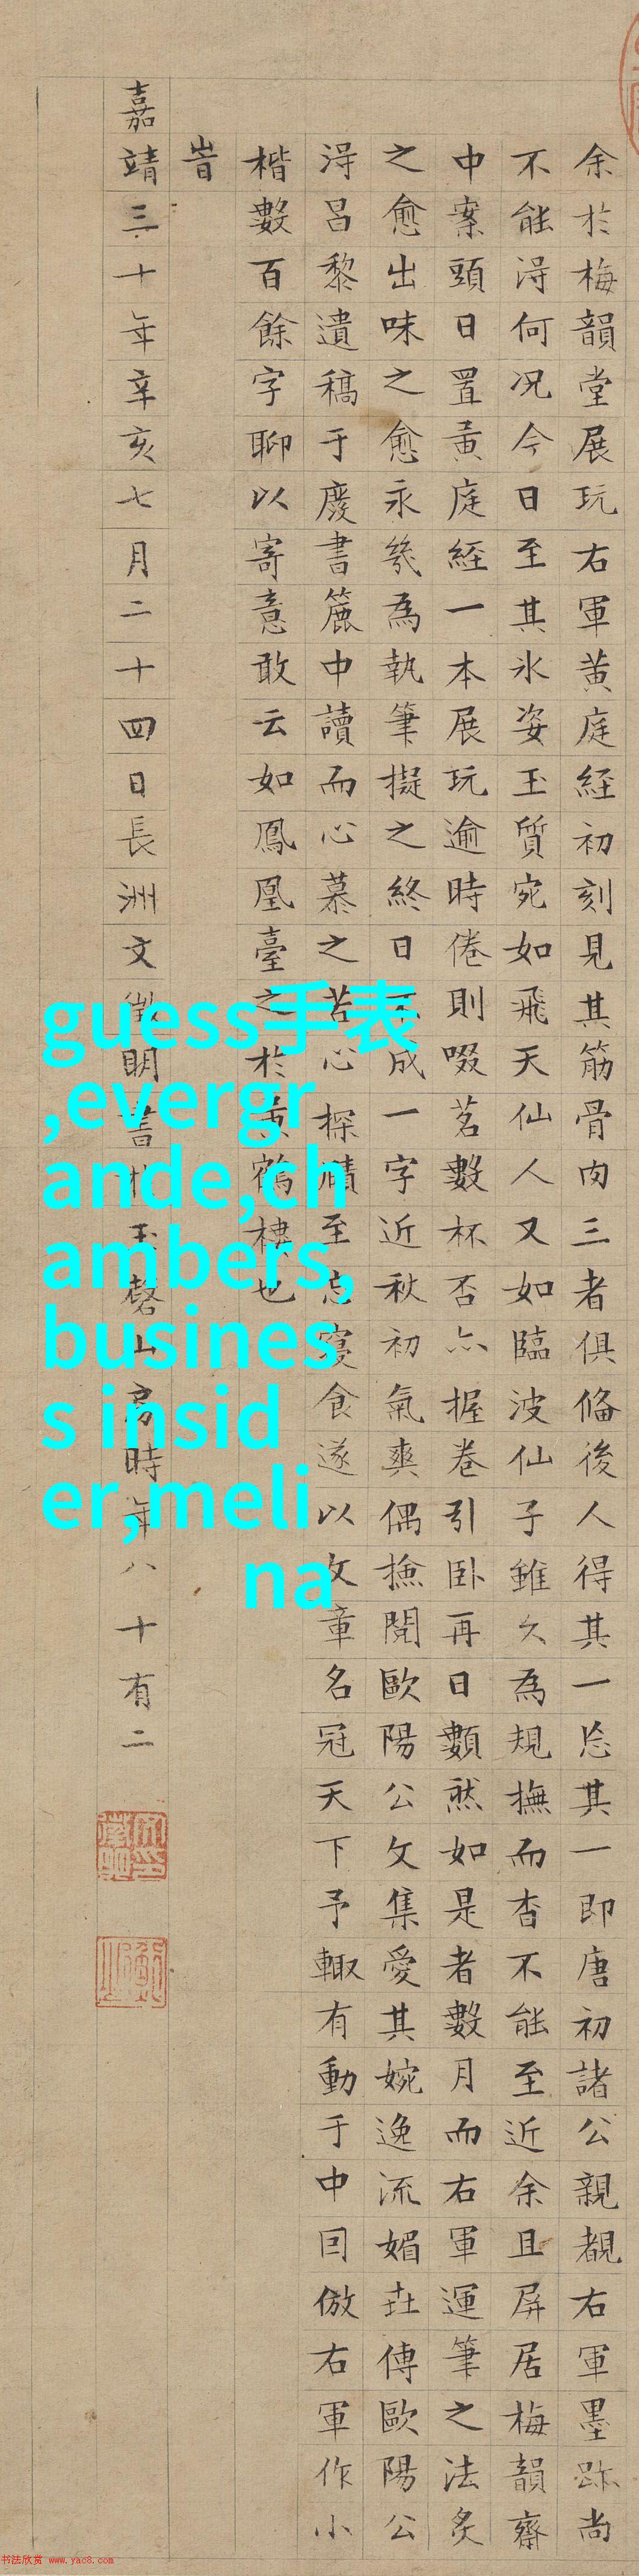 余於梅韻堂展玩右軍黄庭経初刻見其筋骨肉三者俱俻後人得其一忘其一即唐初諸公親覩右軍墨跡尚
不能淂何况今日至其氷姿玉質宛如飛天仙人又如臨波仙子雖久為規撫而杳不能至近余且屏居梅韻齋
中案頭日置黄庭経一本展玩逾時倦則啜茗數杯否亦握卷引卧再日數然如是者數月而右軍運筆之法炙
之愈出味之愈永幾為執筆擬之終日不成一字近秋初氣爽偶撿閲歐陽公文集愛其婉逸流媚且傳歐陽公
淂吕黎遺稿于廢書簏中讀而心慕之苦心探賾至忘寝食遂以文章名冠天下予輙有動于中因倣右軍作小
楷數百餘字聊以寄意敢云如鳳凰臺之於黄鶴樓也
旹
嘉靖三十年辛亥七月二十四日長洲文徴明書於玉磬山房時年八十有二
guess手表
,evergr
ande,ch
ambers,
busines
s insid
er,meli
na
书法欣赏 www.yac8.com